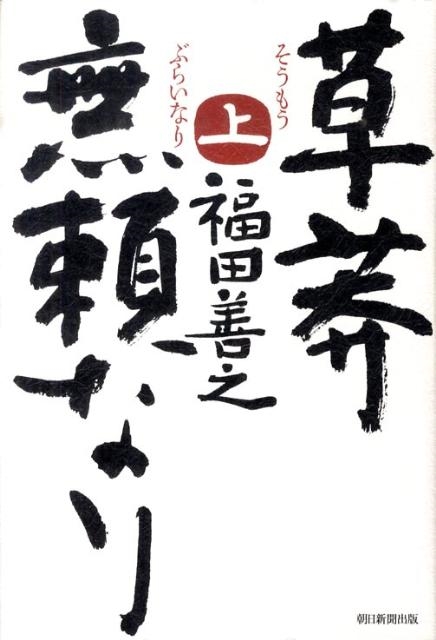 草莽
そうもう
無頼なり
ぶらいなり
上
福田善之
朝日新聞出版